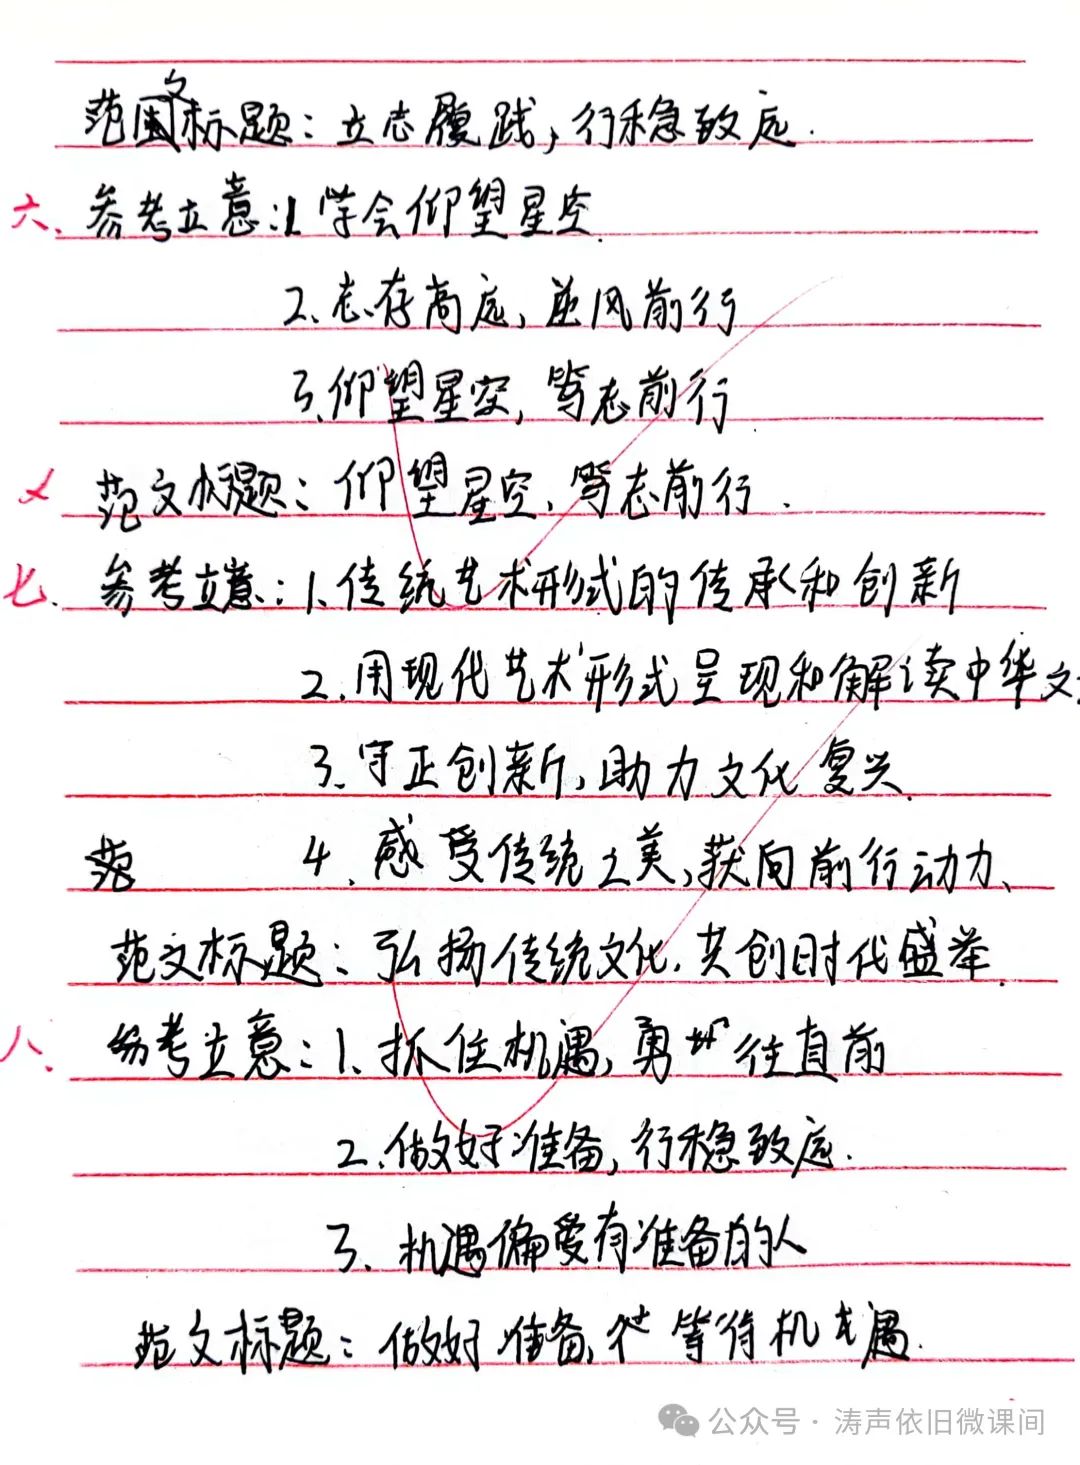 范文标题：立志履践，行稳致远.
六、参考立意：1.学会仰望星空.
2.志存高远，逆风前行
3.仰望星空，笃志前行
范文标题：仰望星空，笃志前行.
七.参考立意：1.传统艺术形式的传承和创新
2.用现代艺术形式呈现和解读中华文
3.守正创新，助力文化复兴.
范 4.感受传统之美，获向前行动力、
范文标题：弘扬传统文化.共创时代盛举.
八、参考立意：1.抓住机遇，勇 往直前
2.做好准备，行稳致远.
3.机遇偏爱有准备的人
范文标题：做好准备， 等待机遇.
公众号·涛声依旧微课间